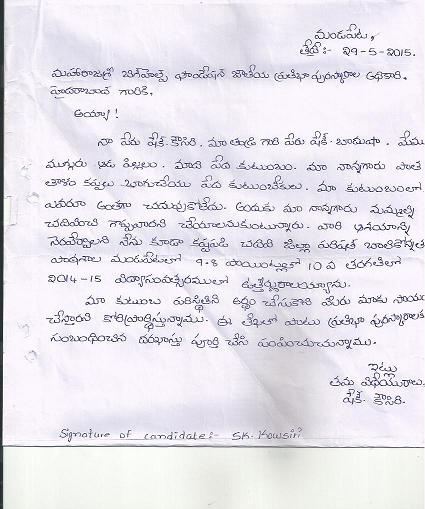 మండపేట,
తేది:- 29-5-2015.
మహారాజశ్రీ బిగ్‌హెల్ప్ ఫౌండేషన్ జాతీయ ప్రతిభా పురస్కారాల అధికారి,
హైదరాబాద్ గారికి,
అయ్యా!
నా పేరు షేక్. కౌసిరి. మా తండ్రి గారి పేరు షేక్. బాదుషా. మేము
ముగ్గురు ఆడ పిల్లలం. మాది పేద కుటుంబం. మా నాన్నగారు పాత
తాళం కప్పలు బాగుచేయు పేద కుటుంబీకులు. మా కుటుంబంలో
ఎవరూ అంతగా చదువుకోలేదు. అందుకు మా నాన్నగారు మమ్మల్ని
చదివించి గొప్పవారిని చేయాలనుకుంటున్నారు. వారి ఆశయాన్ని
నెరవేర్చాలని నేను కూడా కష్టపడి చదివి జిల్లా పరిషత్ బాలికోన్నత
పాఠశాల మండపేటలో 9.8 పాయింట్లుతో 10 వ తరగతిలో
2014-15 విద్యాసంవత్సరములో ఉత్తీర్ణురాలయ్యాను.
మా కుటుంబ పరిస్థితిని అర్థం చేసుకొని మీరు మాకు సాయం
చేస్తారని కోరి ప్రార్థిస్తున్నాము. ఈ లేఖతో పాటు ప్రతిభా పురస్కారాలకు
సంబంధించిన దరఖాస్తు పూర్తి చేసి పంపించుచున్నాము.
ఇట్లు
తమ విధేయురాలు,
షేక్. కౌసిరి.
Signature of candidate:- SK. Kowsiri